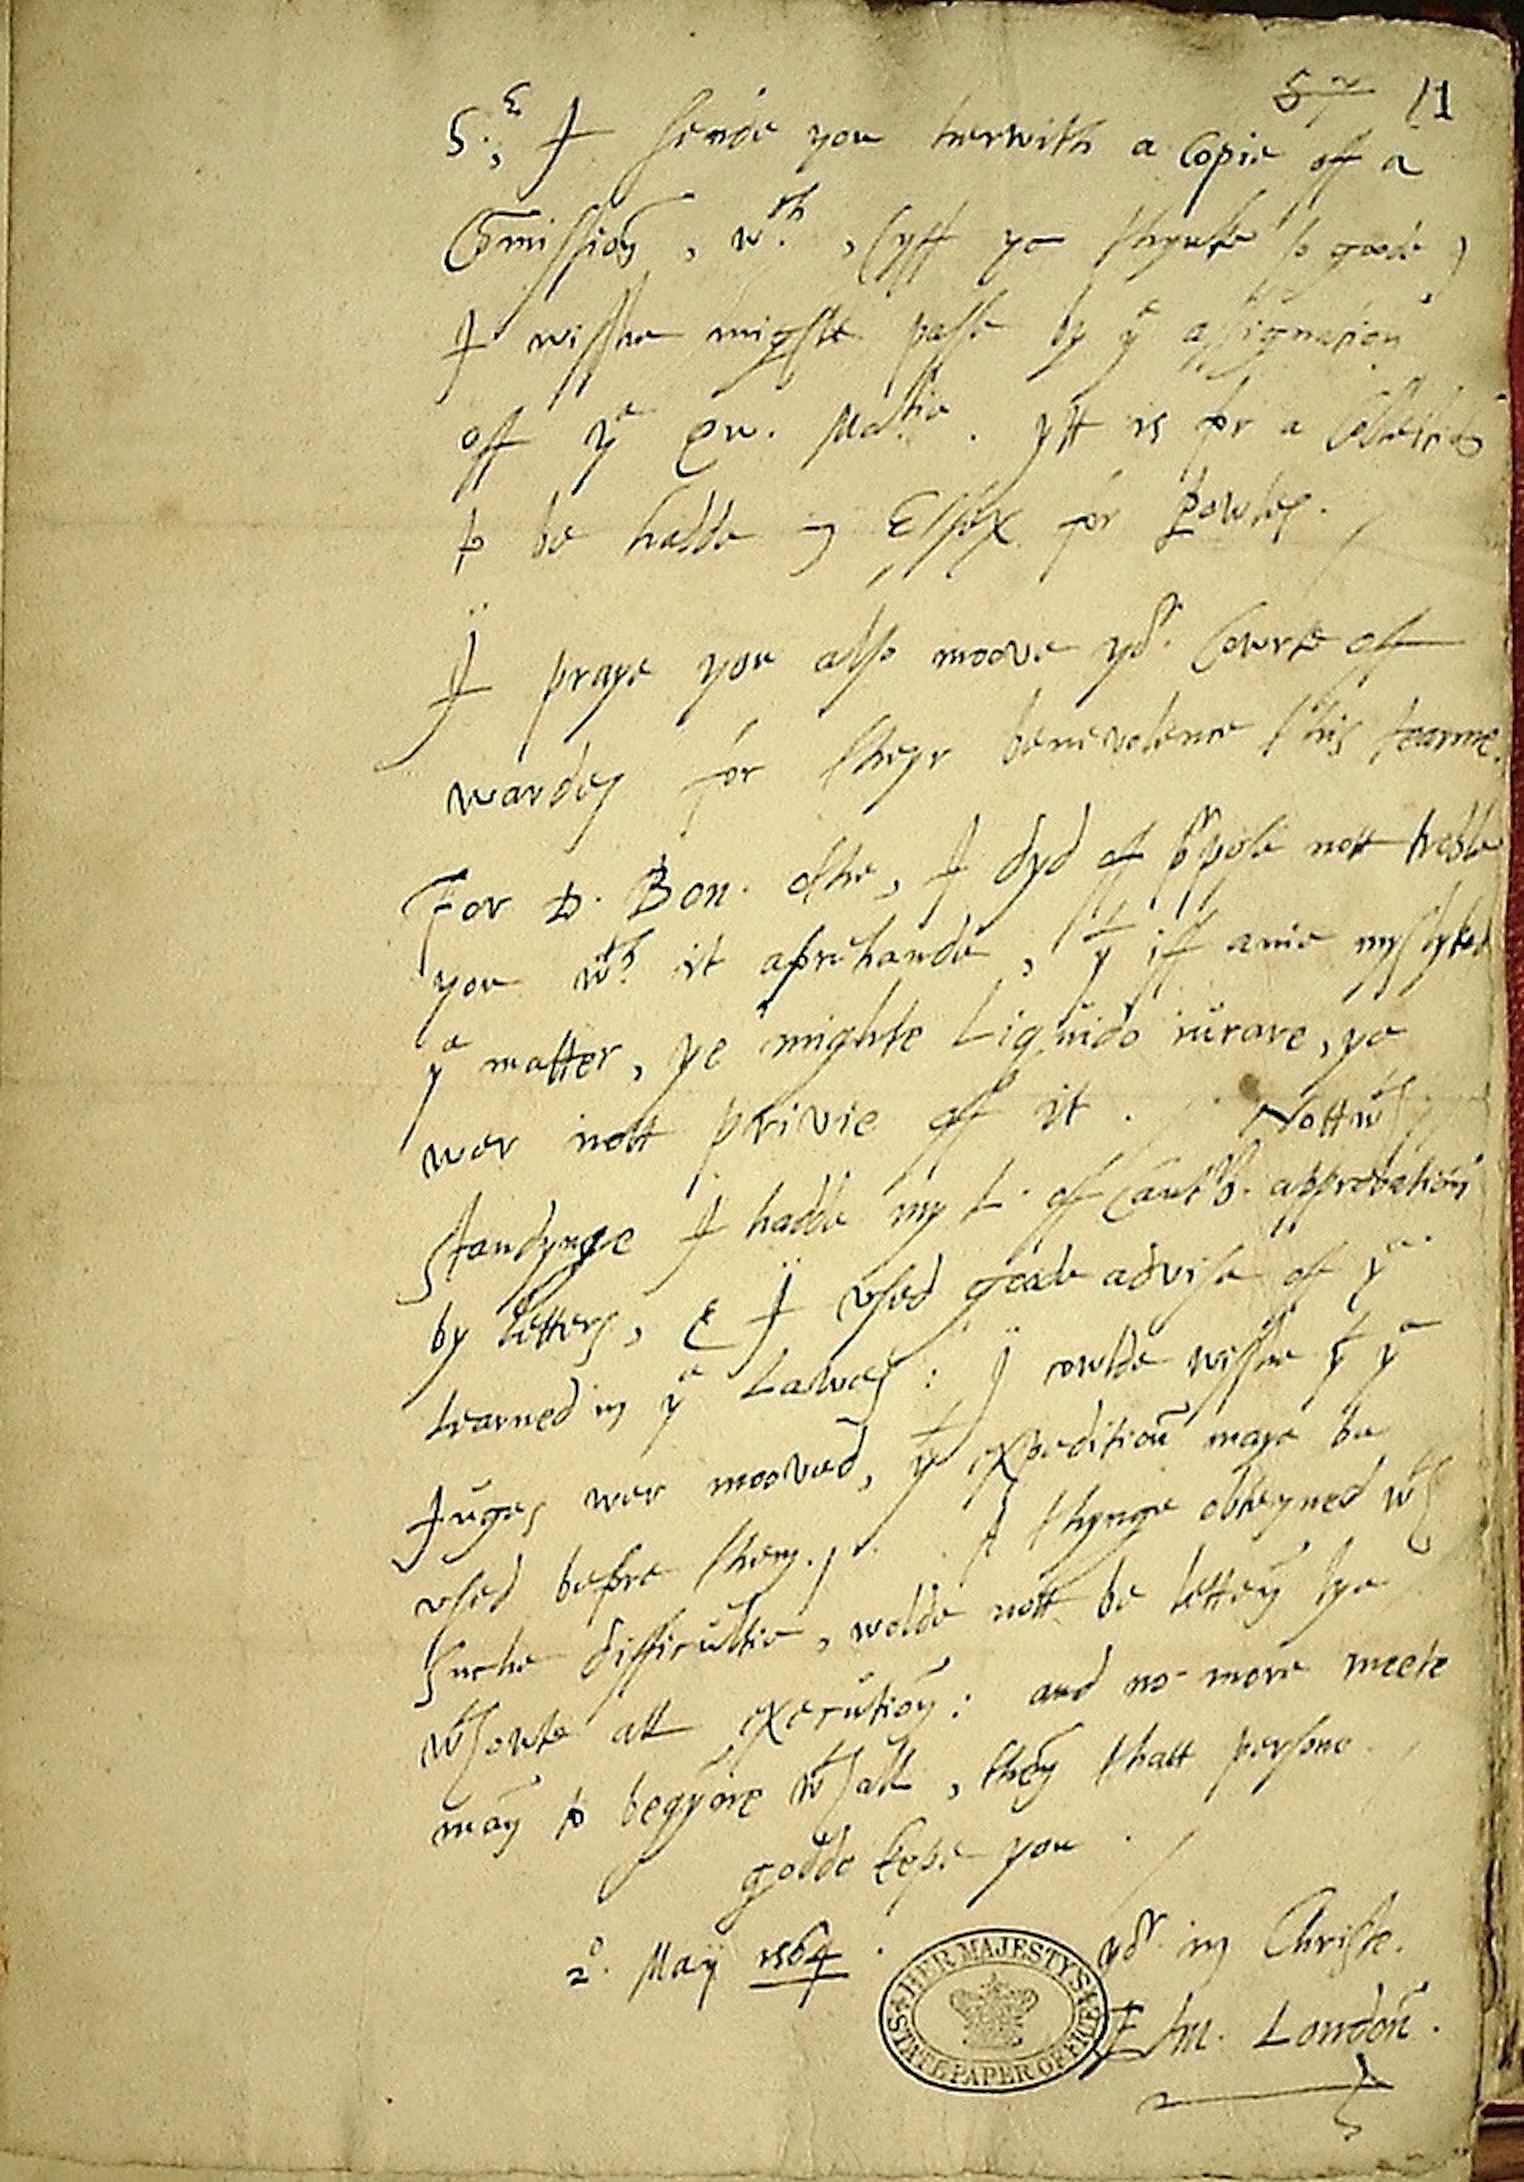 57 11
Sr, I sende you herwith a Copie off a
Comission, wch, (yff ye thynke so goode)
I wisshe mighte passe by ye assignacion
off ye Qu. Matie. ytt is for a Collection
to be hadde in Essex for Powles.
I praye you also moove yor Cowrte off
wardes for theyr benevolence this tearme.
For D. Bon. othe, I dyd off purpose nott troble
you wth it aforehande, yt iff anie myslyked
ye matter, ye mighte Liquido iurare, ye
wer nott privie off it. Nottwth
standynge I hadde my L. off Cantrb. approbation
by letters, & I used goode advise of ye
Learned in ye Lawes: I wolde wisshe yt ye
Juges wer mooved, yt expedition maye be
used before them. A thynge obteyned wth
suche difficultie, wolde nott be letten lye
wthowte all execution: and no more meete
man to begynne wthall, then thatt persone.
godde kepe you.
2o. Maij 1564.
yor in Christe.
Edm. London.
HER MAJESTY'S STATE PAPER OFFICE